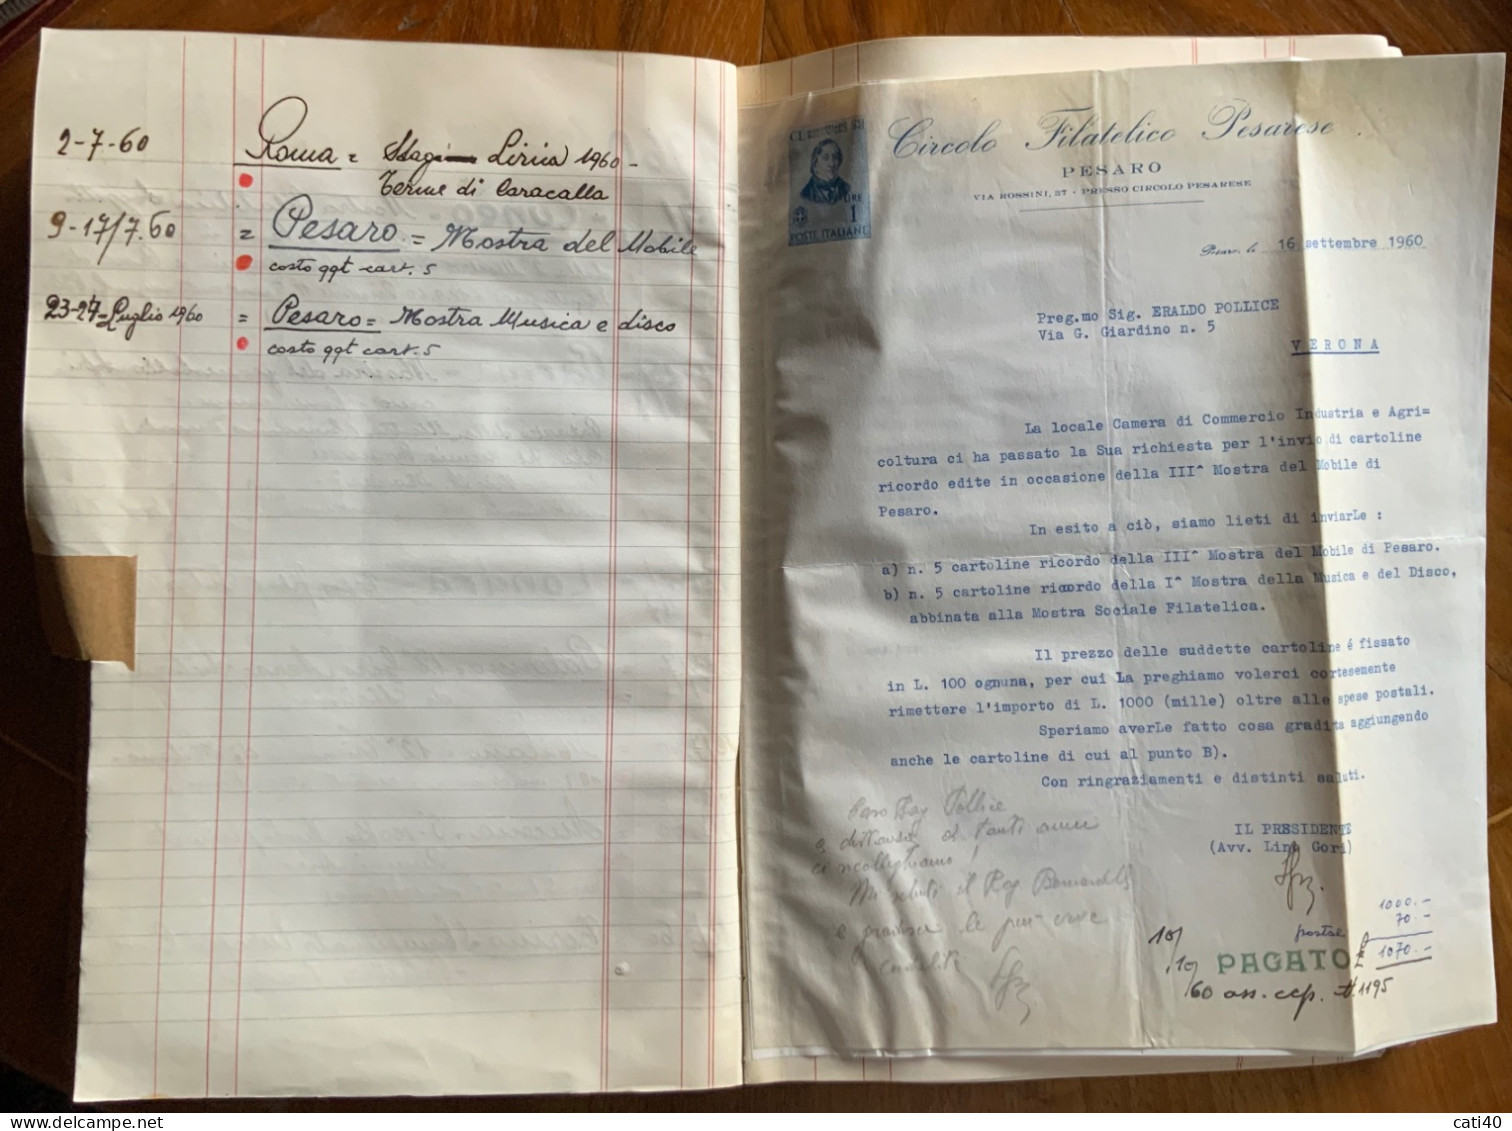 2-7-60
Roma = Stagione Lirica 1960 -
Terme di Caracalla
9-17/7.60 = Pesaro = Mostra del Mobile
costo ggt cart. 5
23-27 = Luglio 1960 = Pesaro = Mostra Musica e disco
costo ggt cart. 5
LIRE 1
POSTE ITALIANE
Circolo Filatelico Pesarese
PESARO
VIA ROSSINI, 37 - PRESSO CIRCOLO PESARESE
Pesaro, li 16 settembre 1960
Preg.mo Sig. ERALDO POLLICE
Via G. Giardino n. 5
VERONA
La locale Camera di Commercio Industria e Agri=
coltura ci ha passato la Sua richiesta per l'invio di cartoline
ricordo edite in occasione della III^ Mostra del Mobile di
Pesaro.
In esito a ciò, siamo lieti di inviarLe :
a) n. 5 cartoline ricordo della III^ Mostra del Mobile di Pesaro.
b) n. 5 cartoline ricordo della I^ Mostra della Musica e del Disco,
abbinata alla Mostra Sociale Filatelica.
Il prezzo delle suddette cartoline é fissato
in L. 100 ognuna, per cui La preghiamo volerci cortesemente
rimettere l'importo di L. 1000 (mille) oltre alle spese postali.
Speriamo averLe fatto cosa gradita aggiungendo
anche le cartoline di cui al punto B).
Con ringraziamenti e distinti saluti.
Caro Rag Pollice
a distanza di tanti anni
ci ricolleghiamo!
Mi saluti il Rag
e gradisca le più vive
cordialità
IL PRESIDENTE
(Avv. Lino Gori)
1000.-
postali 70.-
PAGATO £ 1070.-
10/10/60 ass. ccp. N. 1195
cati40